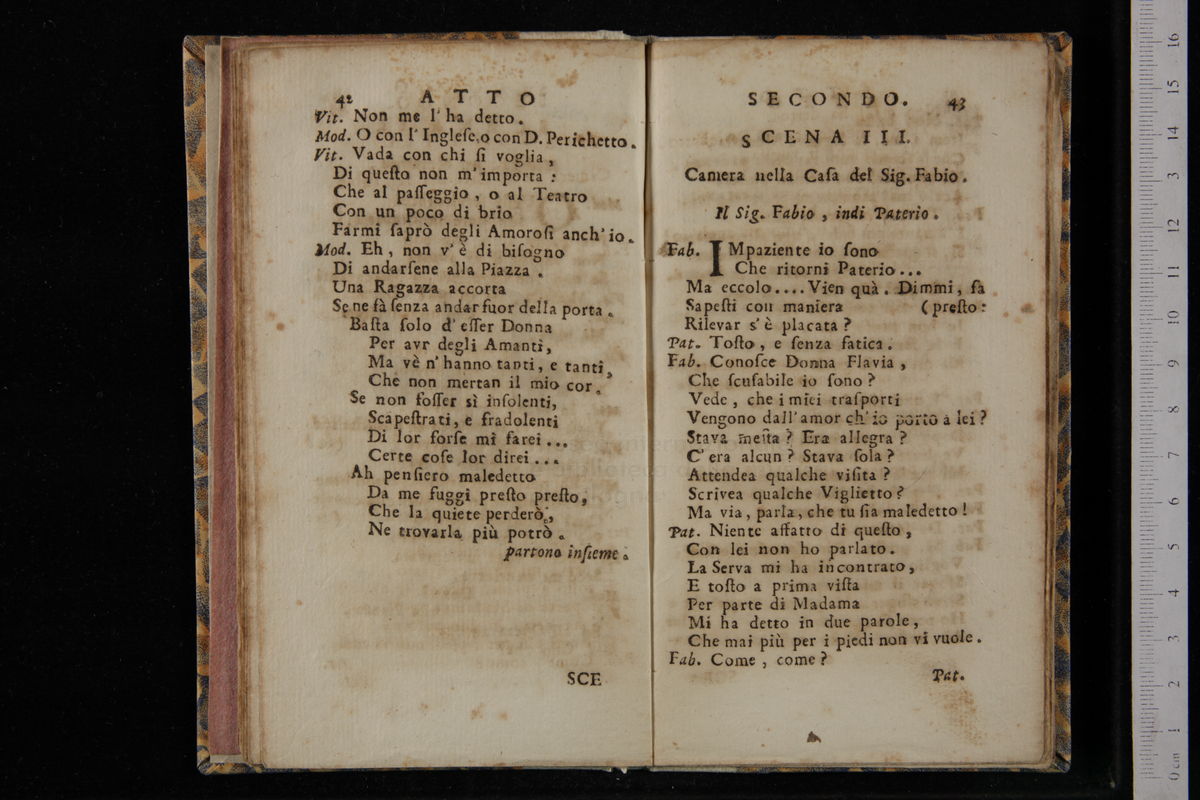 42 ATTO
Vit. Non me l' ha detto.
Mod. O con l' Ingleſe, o con D. Perichetto.
Vit. Vada con chi ſi voglia,
Di queſto non m' importa :
Che al paſſeggio, o al Teatro
Con un poco di brio
Farmi ſaprò degli Amoroſi anch' io.
Mod. Eh, non v' è di biſogno
Di andarſene alla Piazza.
Una Ragazza accorta
Se ne fà ſenza andar fuor della porta.
Baſta ſolo d' eſſer Donna
Per avr degli Amanti,
Ma vè n' hanno tanti, e tanti,
Che non mertan il mio cor.
Se non foſſer sì inſolenti,
Scapeſtrati, e fradolenti
Di lor forſe mi farei...
Certe coſe lor direi...
Ah penſiero maledetto
Da me fuggi preſto preſto,
Che la quiete perderò,
Ne trovarla più potrò.
partono inſieme.
SCE
SECONDO. 43
SCENA III.
Camera nella Caſa del Sig. Fabio.
Il Sig. Fabio, indi Paterio.
Fab. IMpaziente io ſono
Che ritorni Paterio...
Ma eccolo.... Vien quà. Dimmi, fà
Sapeſti con maniera (preſto:
Rilevar s' è placata ?
Pat. Toſto, e ſenza fatica.
Fab. Conoſce Donna Flavia,
Che ſcuſabile io ſono ?
Vede, che i miei traſporti
Vengono dall' amor ch' io porto a lei ?
Stava meſta ? Era allegra ?
C' era alcun ? Stava ſola ?
Attendea qualche viſita ?
Scrivea qualche Viglietto ?
Ma via, parla, che tu ſia maledetto !
Pat. Niente affatto di queſto,
Con lei non ho parlato.
La Serva mi ha incontrato,
E toſto a prima viſta
Per parte di Madama
Mi ha detto in due parole,
Che mai più per i piedi non vi vuole.
Fab. Come, come ?
Pat.
0 cm 1 2 3 4 5 6 7 8 9 10 11 12 13 14 15 16